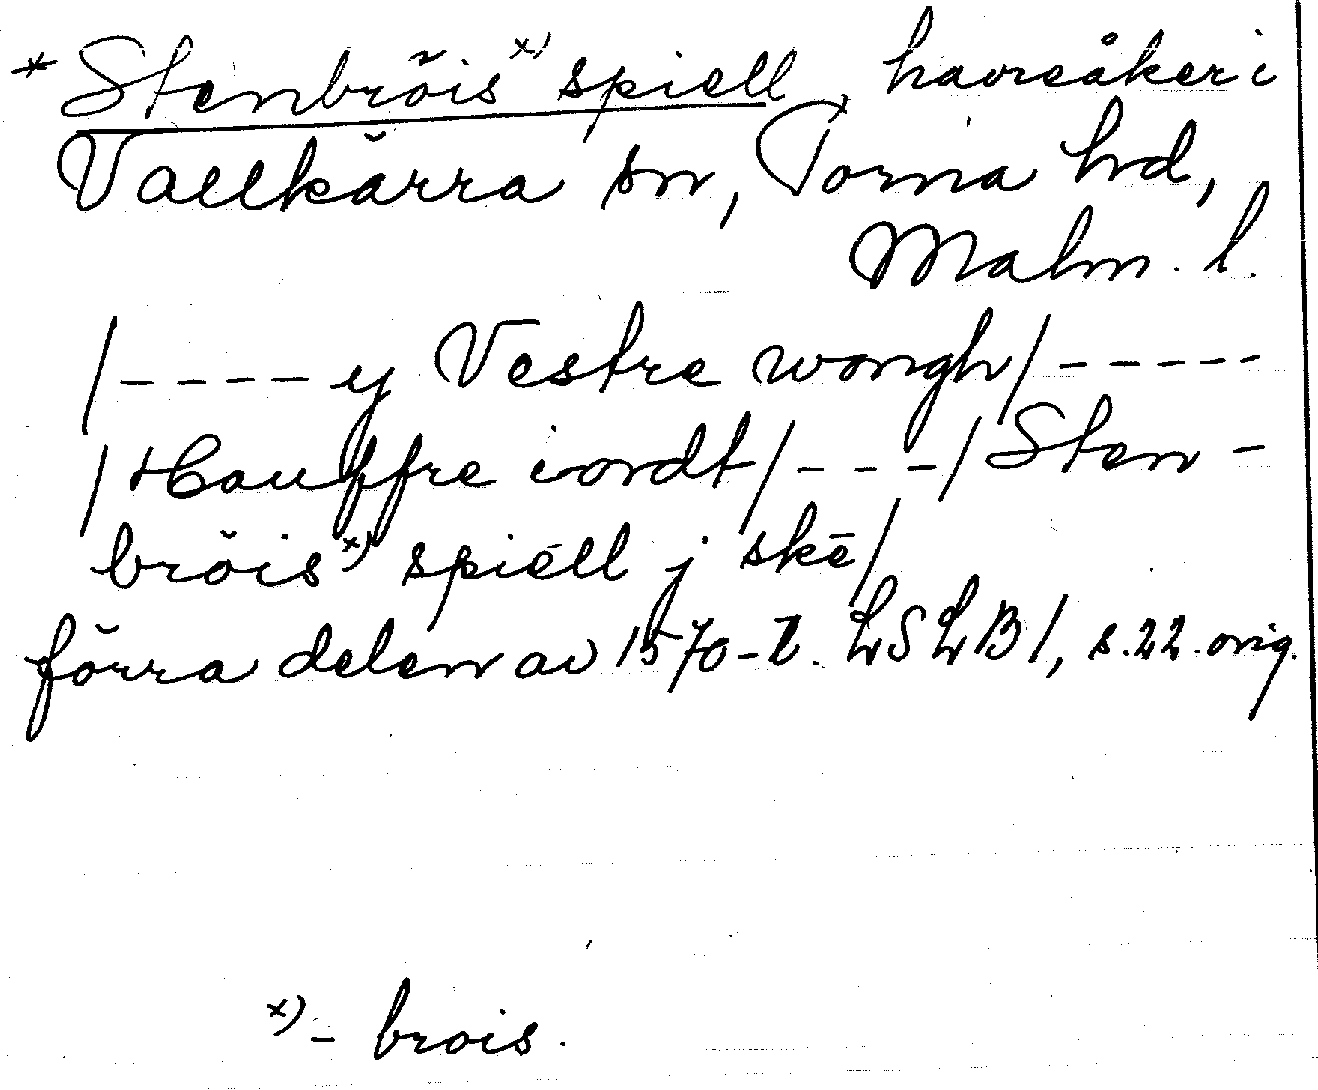 * Stenbröis x) spiell, havreåker i
Vallkärra sn, Torna hd,
Malm. l.
/ - - - - - y Vestre wongh / - - - - -
/ Hauffre iordt / - - - / Sten -
bröis x) spiell j skē /
förra delen av 1570-t. LSLB 1, s. 22. orig.
x) - brois.